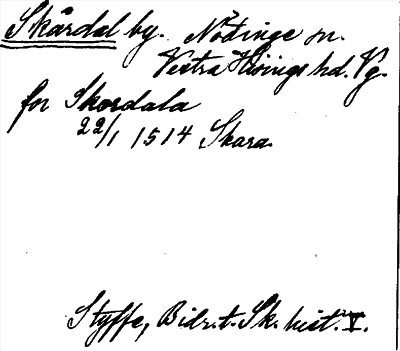 Skårdal by. Nödinge sn.
Västra Hisings hd. Vg.
for Skordala
22/1 1514 Skara.
Styffe, Bidr. t. Sk. hist. V.